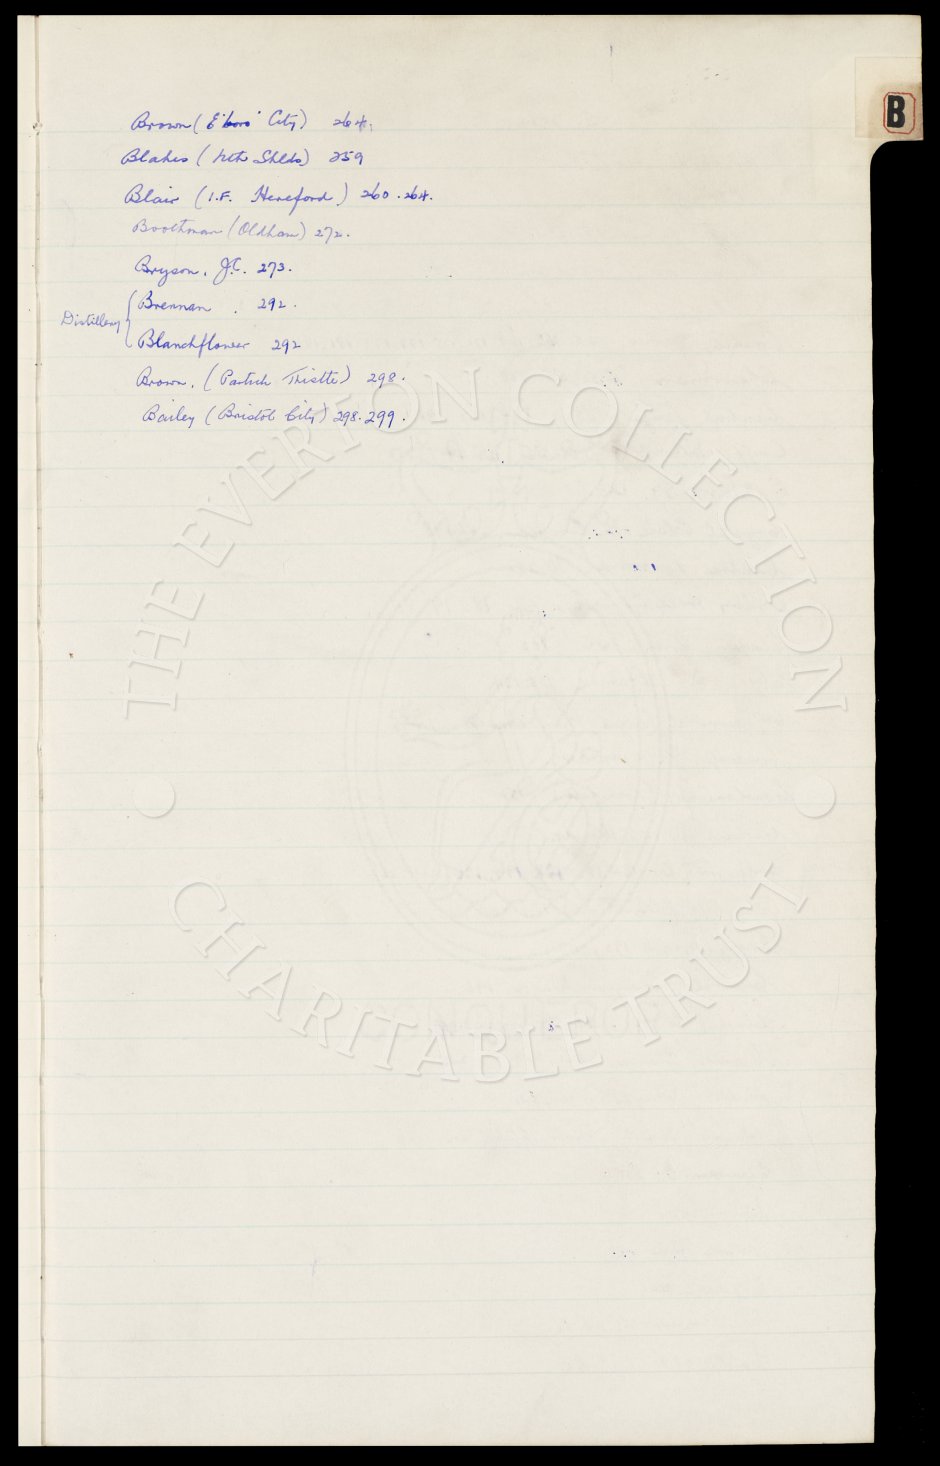 B
Brown (E'boro' City) 264.
Blakes (Nth Shlds) 259
Blair (I.F. Hereford.) 260. 264.
Boothman (Oldham) 272.
Bryson. J.C. 273.
Brennan. 292.
Distillery
Blanchflower 292
Brown. (Partick Thistle) 298.
Bailey (Bristol City) 298. 299.
THE EVERTON COLLECTION
CHARITABLE TRUST